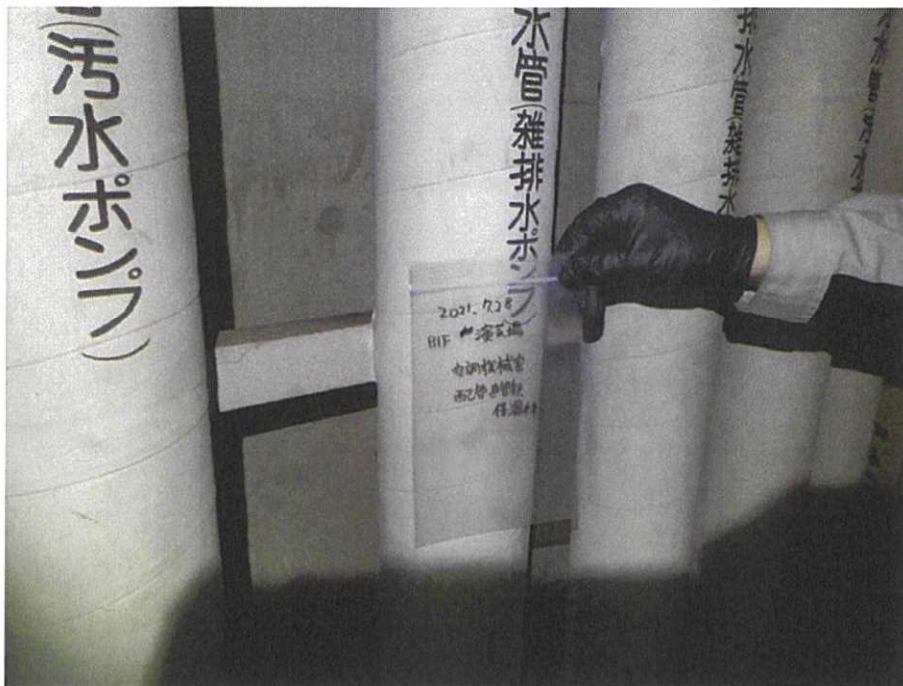 (汚水ポンプ)
水管(雑排水ポンプ)
排水管(雑排水
水管(汚水
2021.7.28
B1F 演芸場
空調機械室
配管直管部
保温材